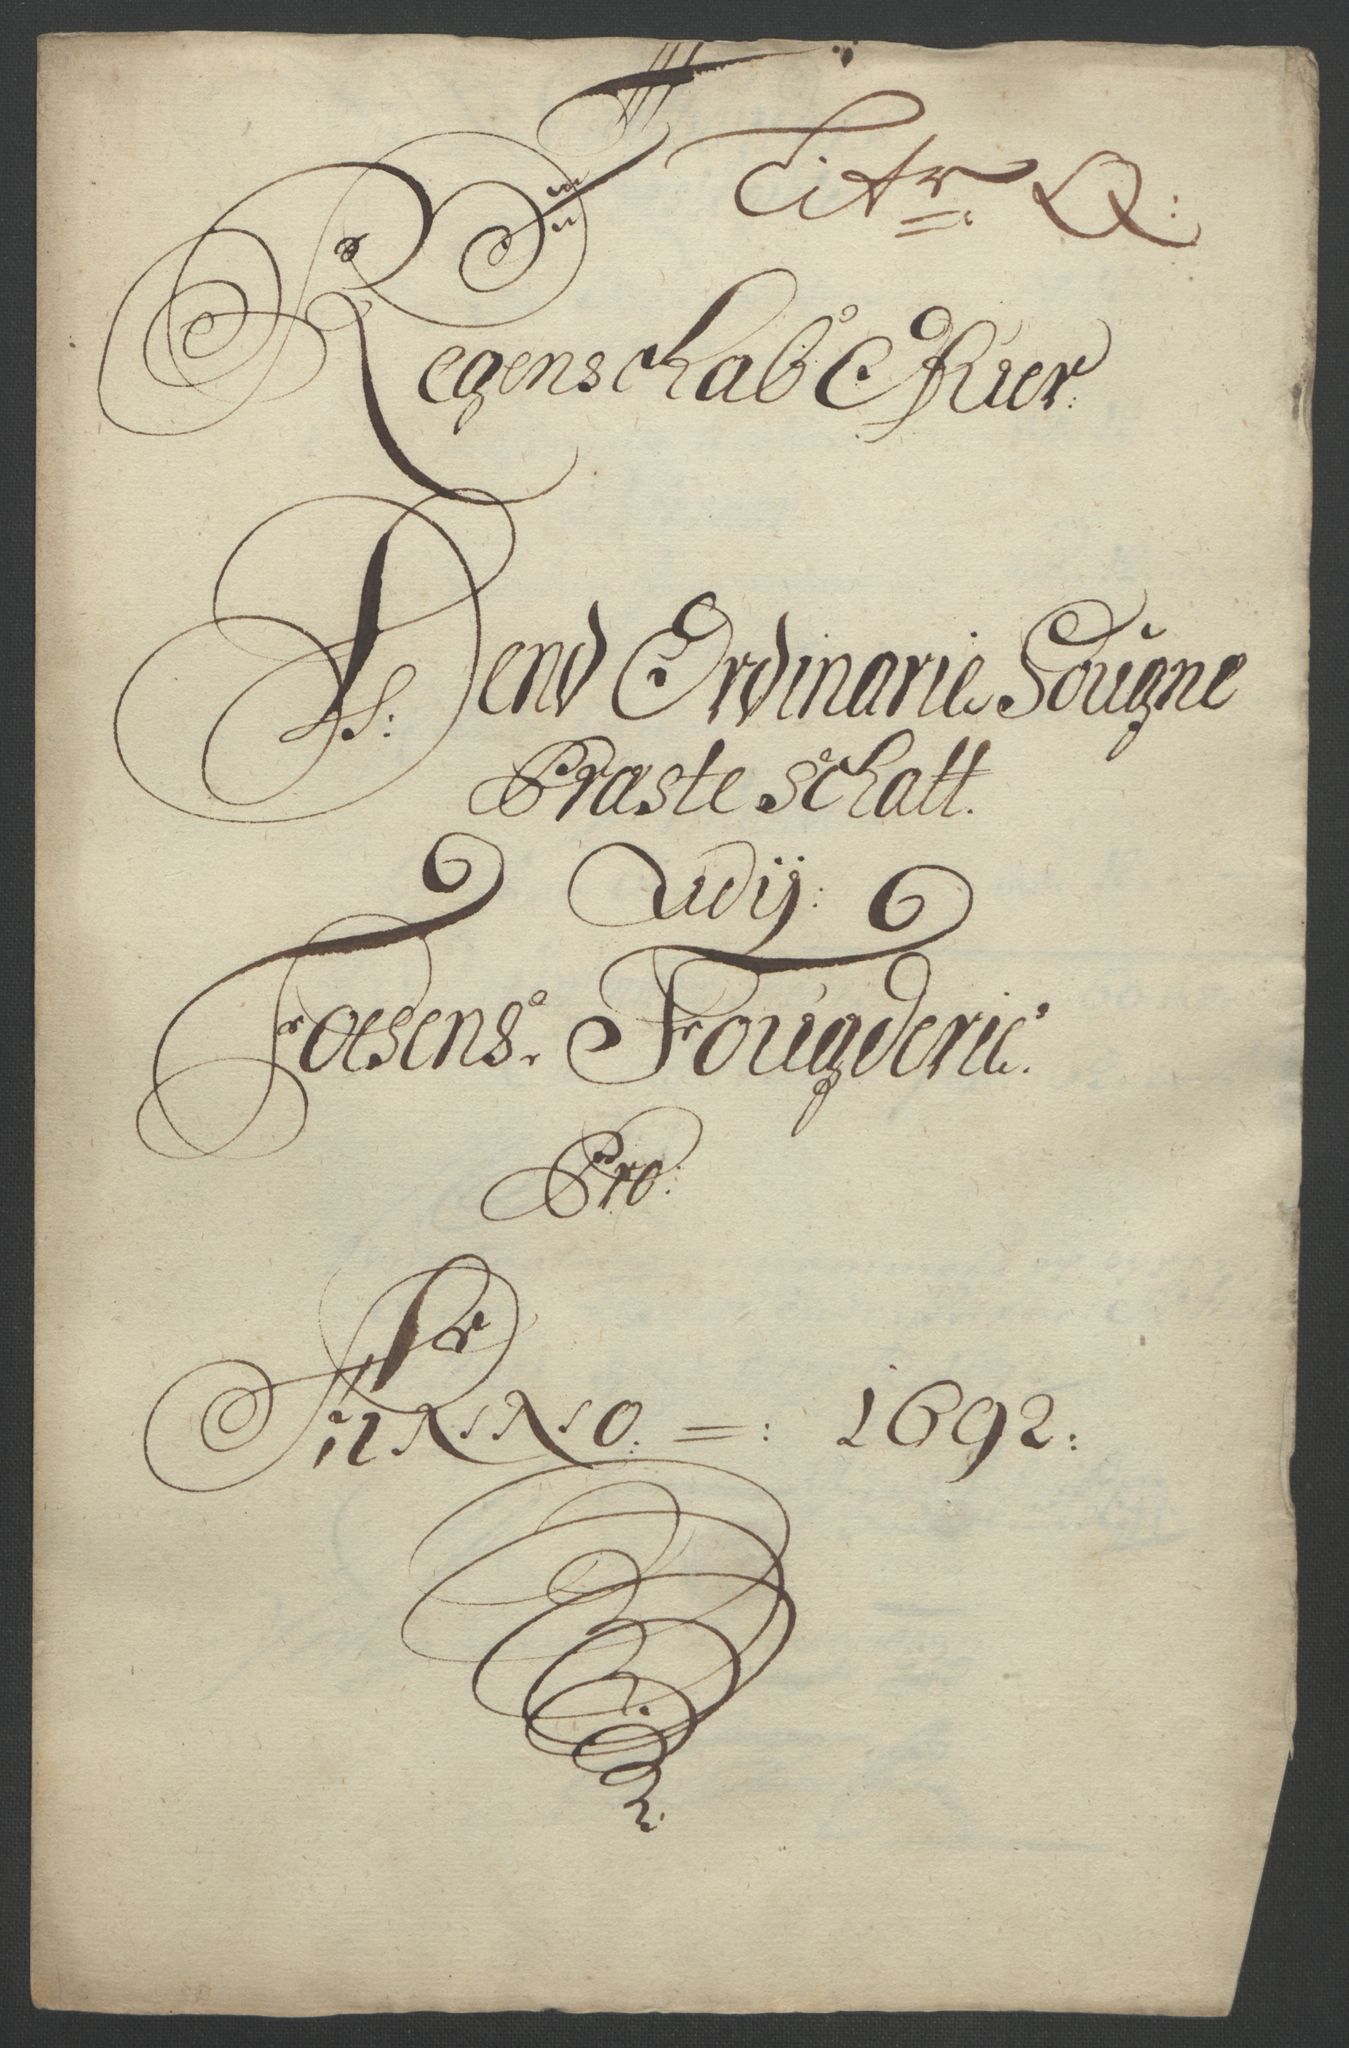 Litr Q:
Regenschab Ofuer
Dend Ordinarie Sougne
Præste schatt.
Udij:
Foesens. Fougderie.
Pro:
Anno =: 1692: